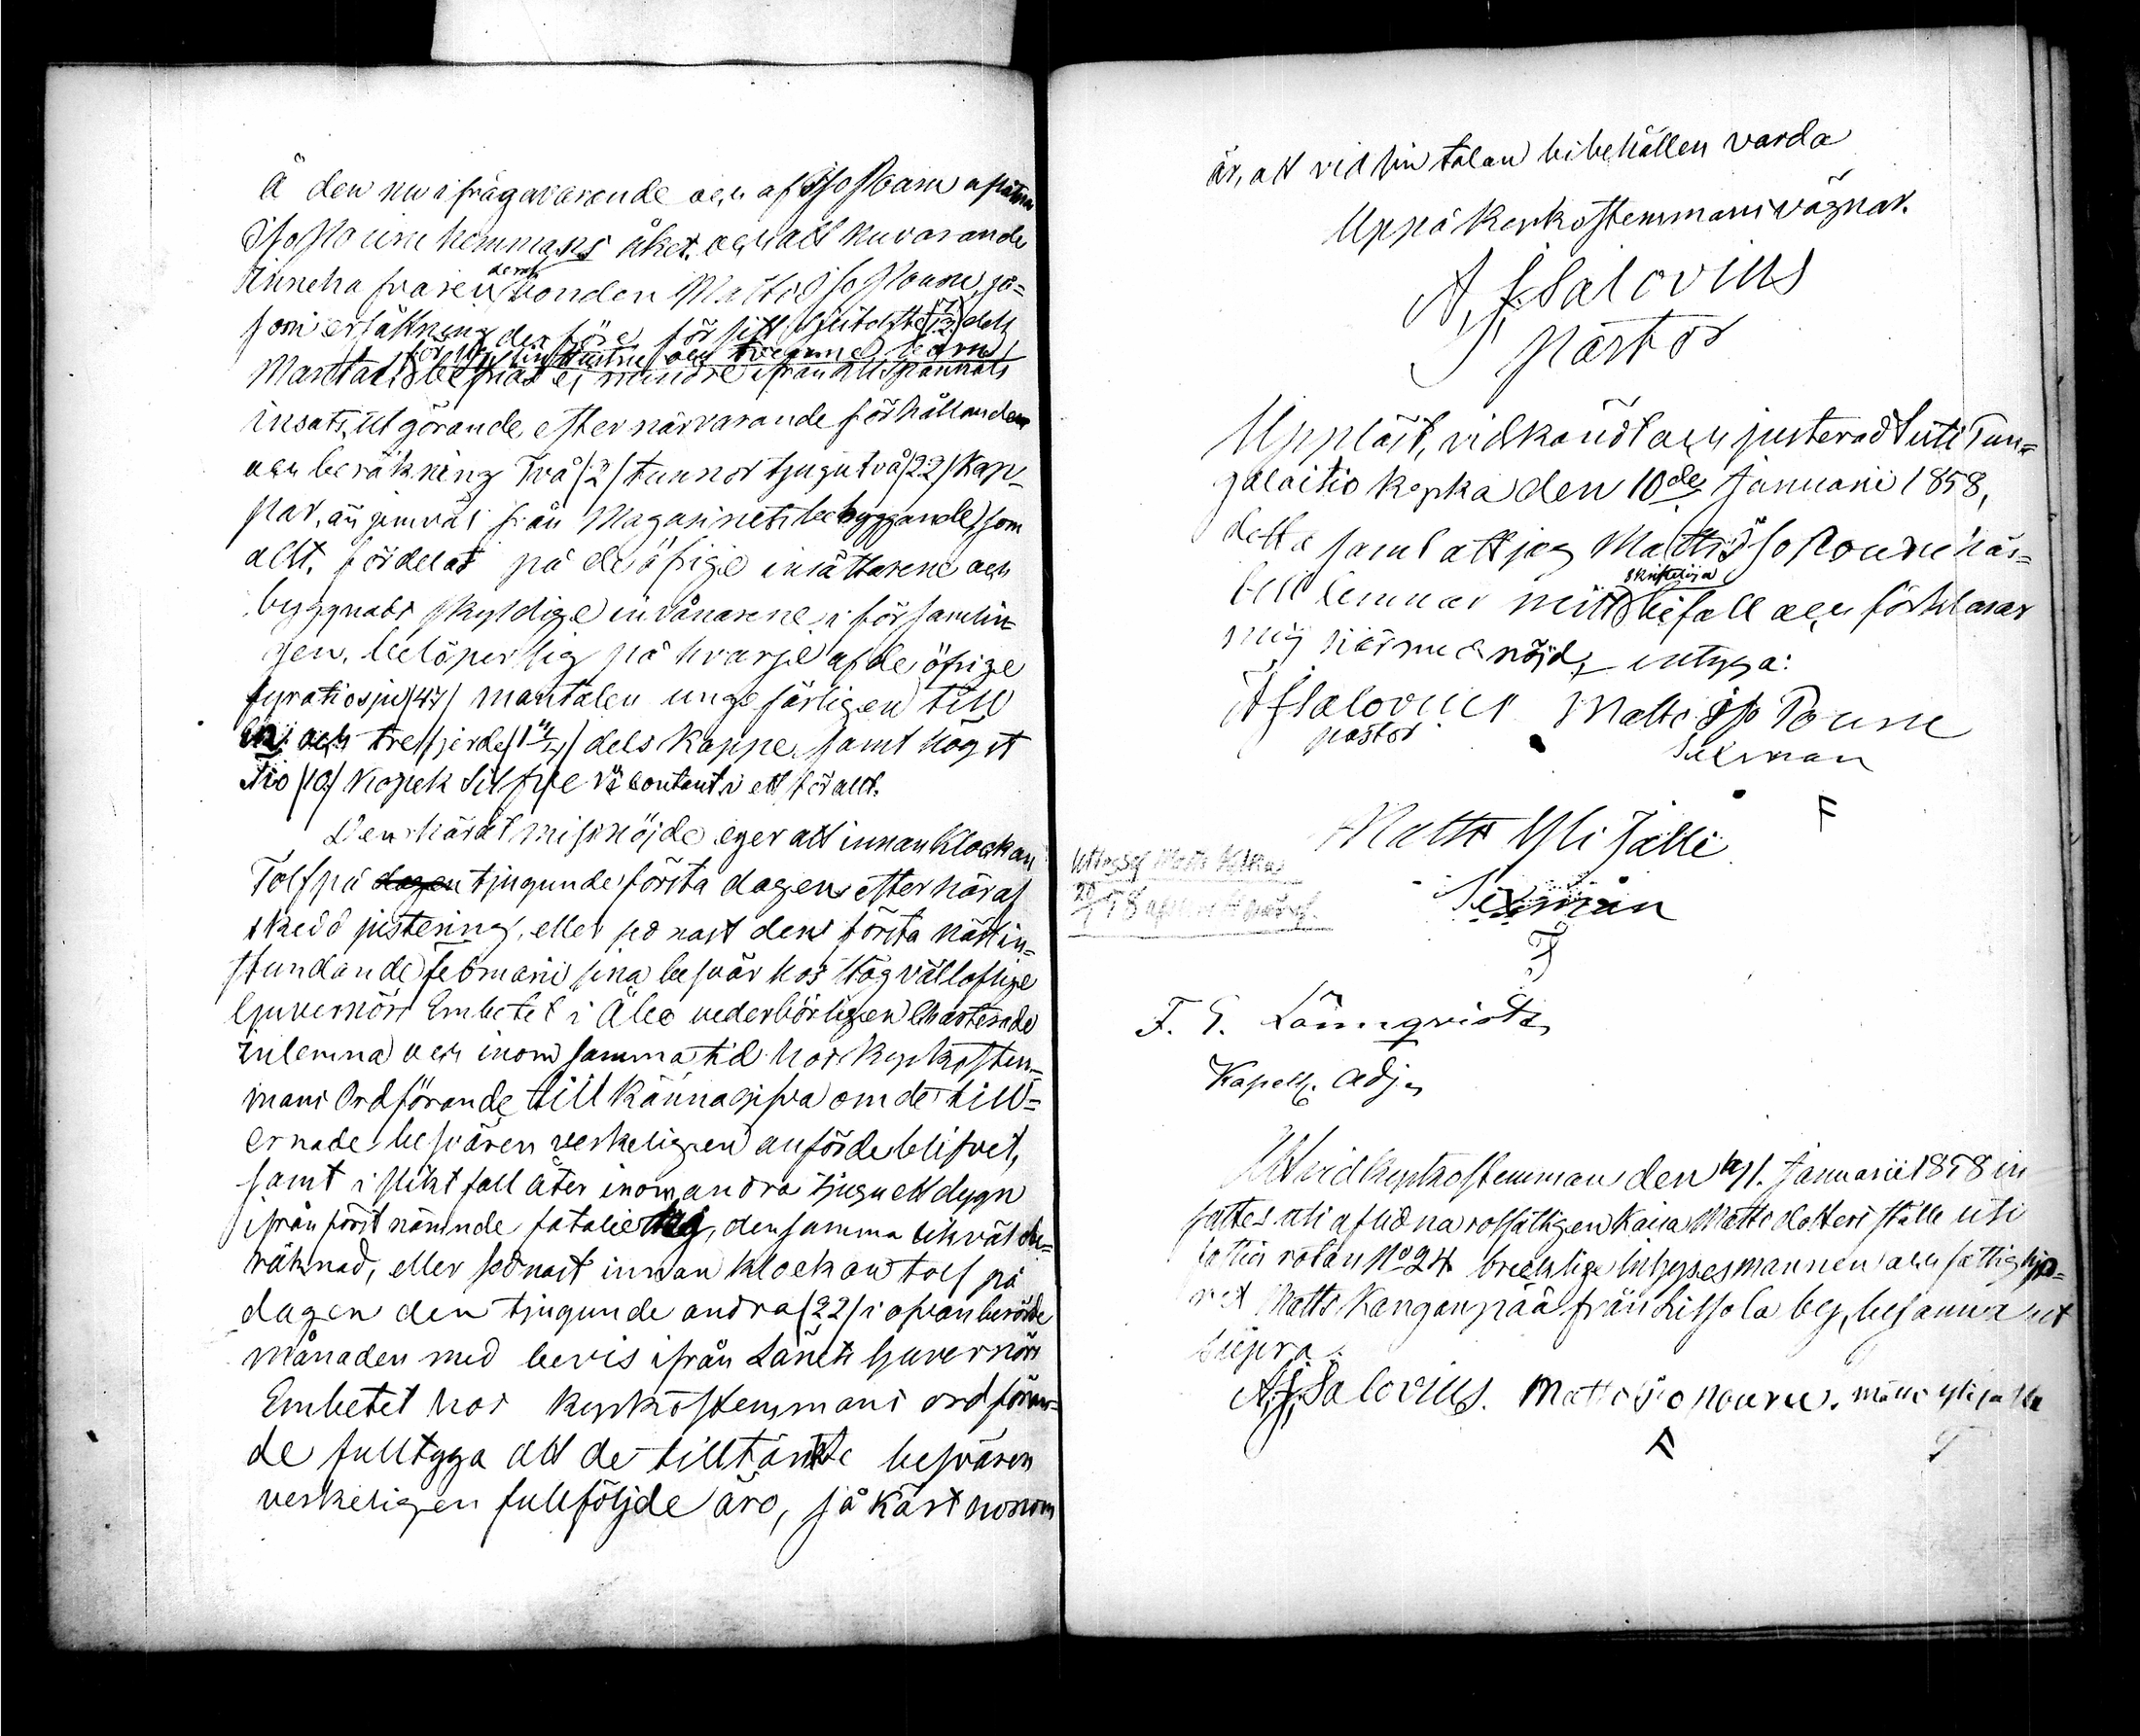 å den nu i frågavarande och af Iso Poan
Iso Poune hemmans åker. och att nuvarande
Innehafvaren deraf bonden Matts Iso Poune, så=
som ersättning derföre, för sitt dels
för sin hustru och tvenne barn,
Mantal befrias ej mindre ifrån utspannåls
insats, utgörande efter närvarande förhållanden
och beräkning Två /2/ tunnor tjugutvå /22/ Kap-
par, än jemväl från Magasinets bebyggande, som
allt, fördelat på de öfrige insättarene och
byggnads skyldige invånarene i församlin=
gen, belöper sig på hvarje af de öfrige
fyratiosju /47/ mantalen ungefärligen till
en och tre fjerdedels Kappe, samt högst
Tio /10/ Kopek Silfver contant i ett för allt.
Den häraf missnöjde eger att innan Klockan
Tolf på dagen tjugunde första dagen efter häraf
skedd justering, eller sednast den första nästin=
stundande februarii sina besvär hos Högvälloflige
Guvernörs Embetet i Åbo vederbörligen Chartesade
inlemna och inom samma tid hos Kyrkostem=
mans Ordförande tillkännagifva om de till=
ernade besvären verkeligen anförde blifvit,
samt i slikt fall åter inom andra tjuguett dygn
ifrån först nämnde fatalie dag, densamma likväl obe=
räknad, eller sednast innan klockan tolf på
dagen den tjugunde andra /22/ i ofvanberörde
månaden med bevis ifrån Länets Guvernörs
Embetet hos Kyrkostemmans ordföran=
de fulltyga att de tilltänkte besvären
verkeligen fullföljde äro, så kärt honom
är, att vid sin talan bibehållen varda
Uppå Kyrkostemmans vägnar.
A. F. Salovius
Pastor
Uppläst, vidkändt och justerad uti Tun=
galaitio kyrka den 10de Januarii 1858,
detta samt att jag Matts Iso Poune här=
till lemnar mitt skriftliga bifall och förklarar
mig härmed nöjd, intyga:
A F Salovius Matts Iso Poune
pastor Sexman
F
Matts Yli Jälli
Sexman
F. E. Lönnqvist
Kapell. Adj.
Att vid Kyrkostemman den Januarii 1858 in
sattes uti aflidna rotfattigen Kaisa Matts dotters ställe uti
fattig rotan No 24 bräcklige Inhysesmannen och fattighjo=
net Matts Kanganpää från by, besanna ut
supra.
A. F. Salovius. Matts Iso Poune. Matts Yli Jälli
F